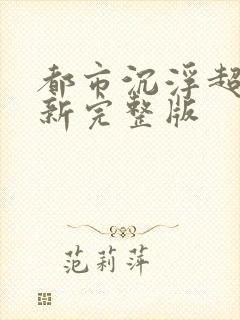 都市沉浮超
新完整版
范莉萍